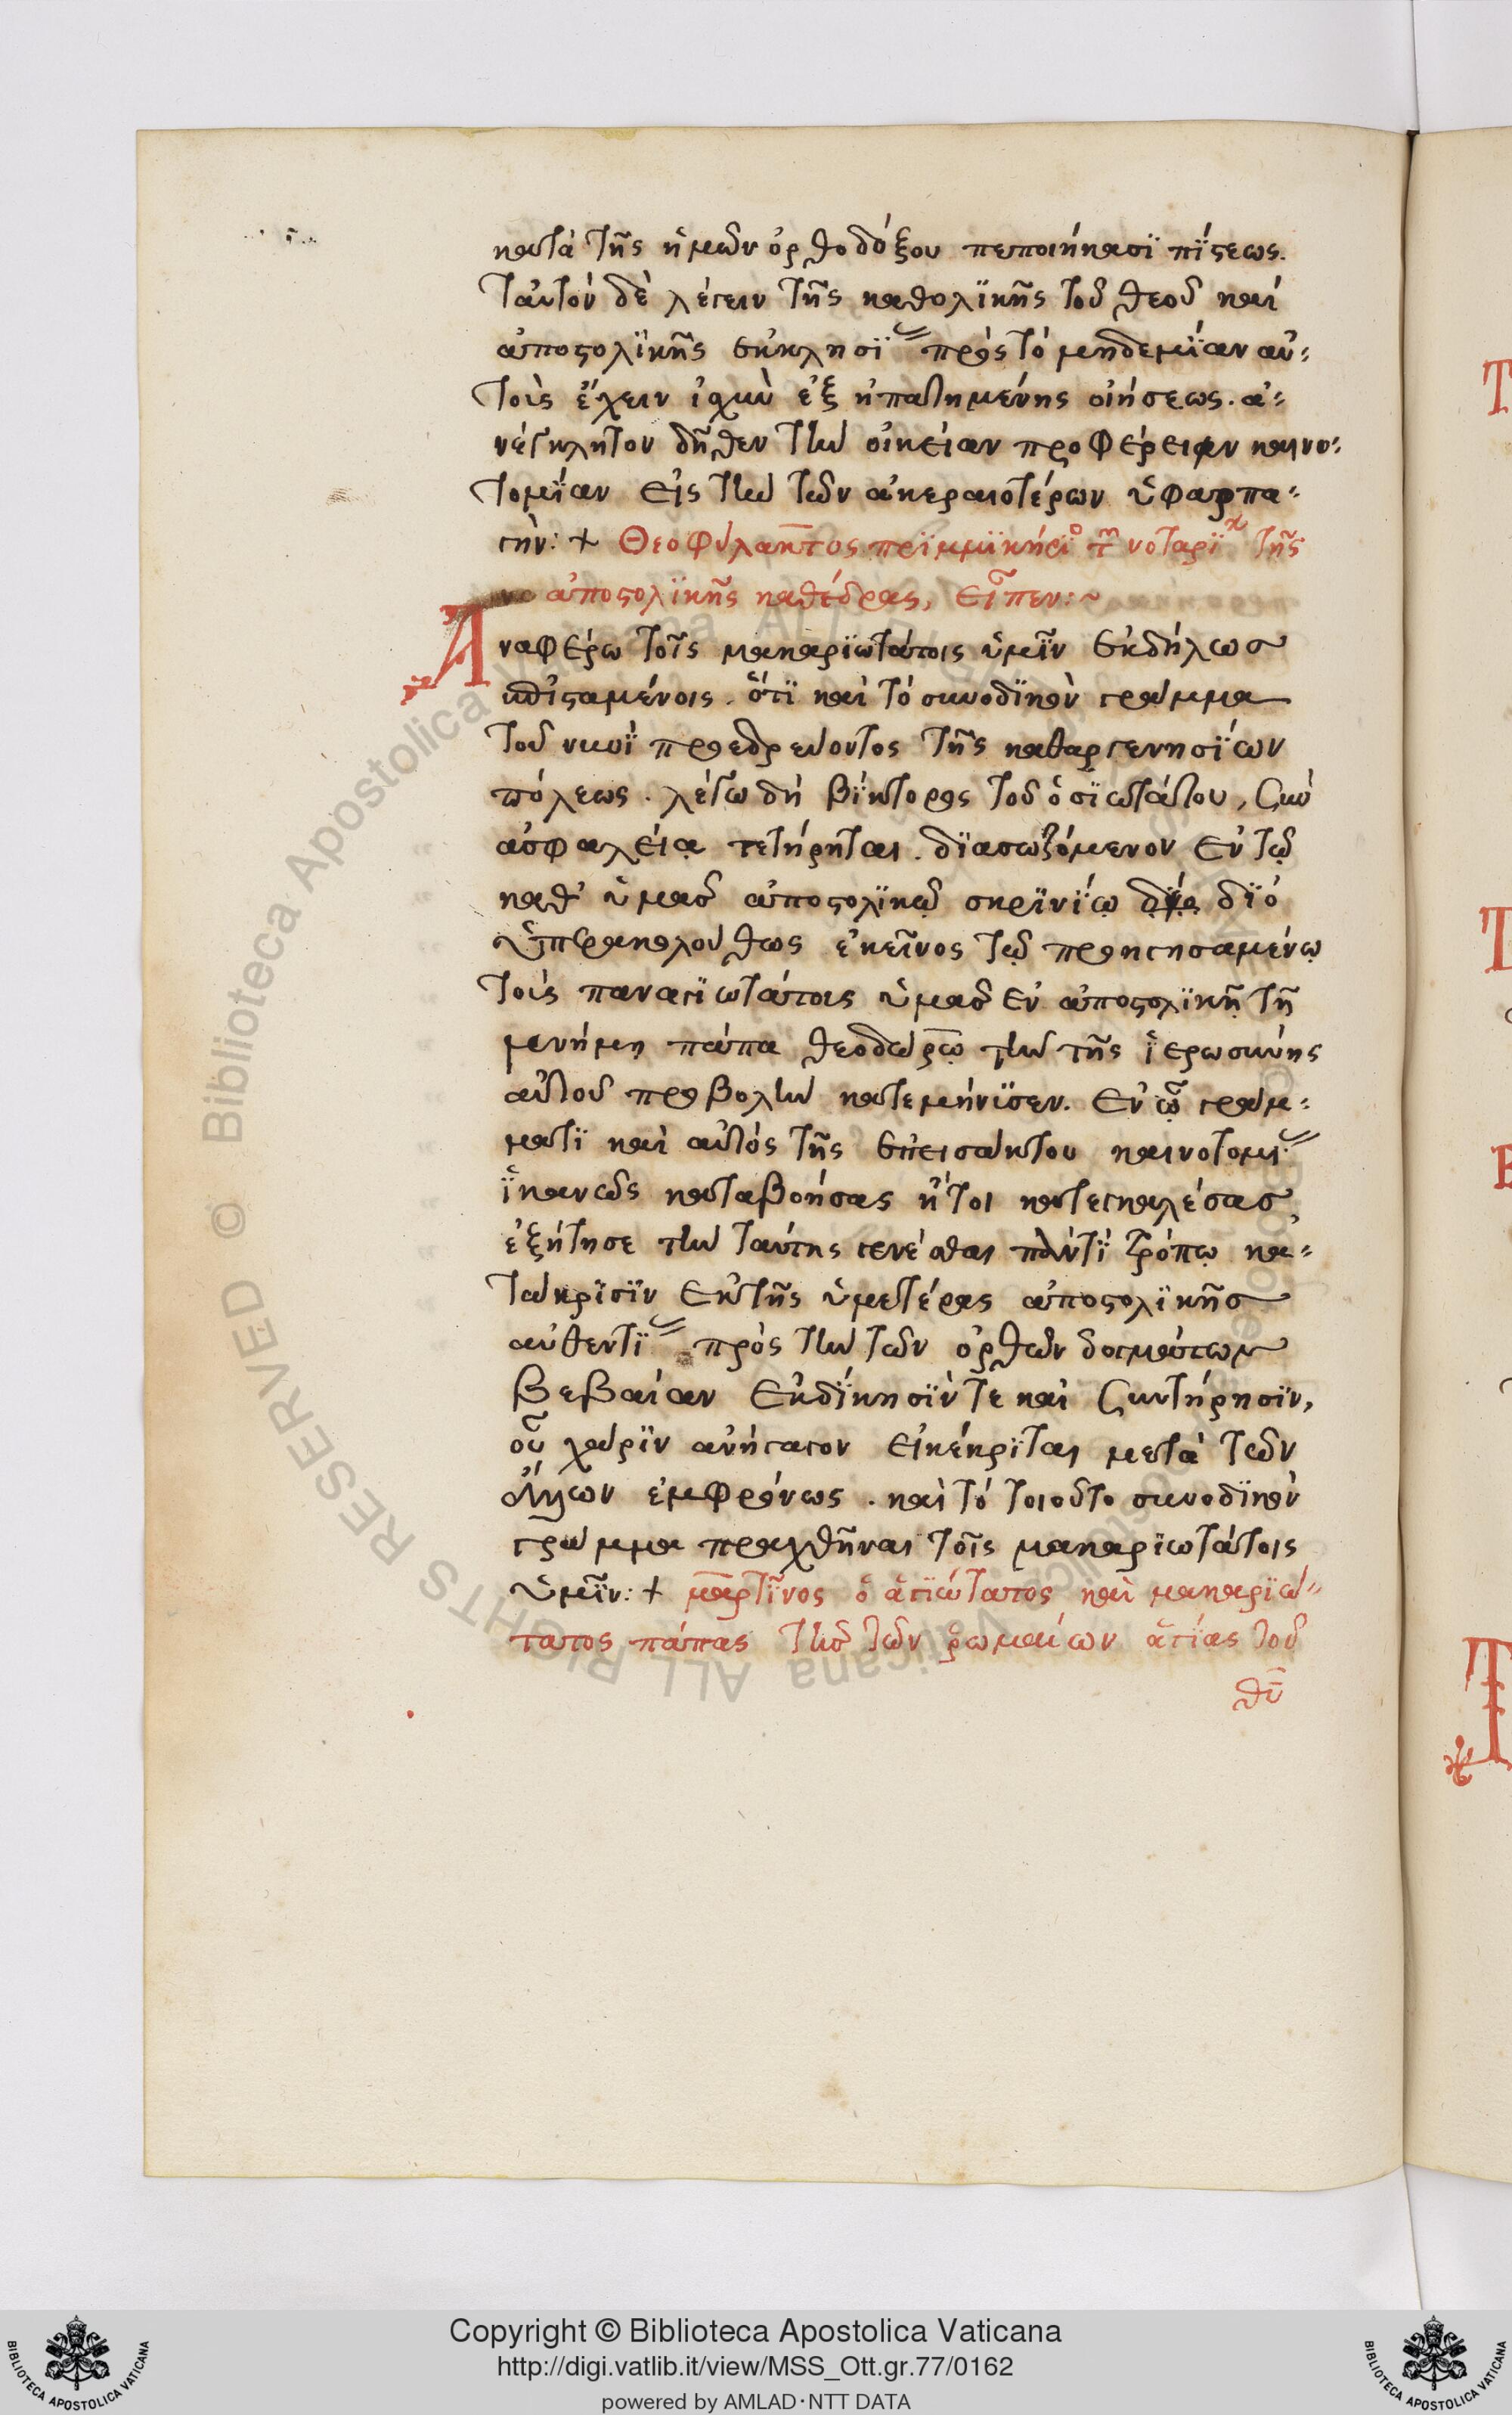 κατὰ τῆς ἡμῶν ὀρθοδόξου πεποιήκασϊ πϊστεως.
Ταὐτὸν δὲ λέγειν τῆς καθολϊκῆς τοῦ θεοῦ καὶ
ἀποστολϊκῆς ἐκκλησϊ πρὸς τὸ μηδεμϊαν αὐ-
τοὺς ἔχειν ἰσχὺν ἐξ ἠπατημένης οἰήσεως. ἀ-
νέγκλητον δῆθεν τὴν οἰκείαν προφέρειν καινο-
τομίαν εἰς τὴν τῶν ἀκεραιοτέρων ὑφαρπα-
γήν: + Θεοφύλακτος πρϊμμϊκήρι τ νοταρϊ τῆς
ἀποστολϊκῆς καθέδρας, εἶπεν:~
Ἀναφέρω τοῖς μακαρϊωτάτοις ὑμῖν ἐκδήλως
καθισταμένοις. ὅτϊ καὶ τὸ συνοδϊκὸν γράμμα
τοῦ νυνὶ προεδρεύοντος τῆς καθαργενησϊων
πόλεως. λέγω δὴ βίκτορος τοῦ ὁσϊωτάτου, σὺν
ἀσφαλείᾳ τετήρηται. δϊασωζόμενον ἐν τῷ
καθ' ὑμᾶς ἀποστολϊκῷ σκρϊνίῳ δϊό
ἐκεῖνος τῷ προηγησαμένῳ
τοὺς παναγϊωτάτους ὑμᾶς ἐν ἀποστολϊκῇ τῇ
μνήμῃ πάπα θεοδώρῳ τὴν τῆς ἱερωσύνης
αὐτοῦ προβολὴν κατεμήνϋσεν. ἐν ᾧ γράμ-
ματϊ καὶ αὐτὸς τῆς ἐπεισάκτου καινοτομι
ϊκανῶς καταβοήσας ἤτοι κατεγκαλέσας,
ἐζήτησε τὴν ταύτης γενέσθαι παντὶ τρόπῳ κα-
τάκρϊσϊν ἐκ τῆς ὑμετέρας ἀποστολϊκῆς
αὐθεντϊ πρὸς τὴν τῶν ὀρθῶν δογμάτων
βεβαίαν ἐκδϊκησϊν τε καὶ συντήρησϊν,
οὗ χάρϊν ἀνήγαγον εἰ κέκρϊται μετὰ τῶν
ἄλλων ἐμφρόνως. καὶ τὸ τοιοῦτο συνοδϊκὸν
γράμμα πραχθῆναι τοῖς μακαρϊωτάτοις
ὑμῖν: + μαρτῖνος ὁ ἁγϊώτατος καὶ μακαρϊώ-
τατος πάπας τῆς τῶν ῥωμαίων ἁγίας τοῦ
θῦ
Copyright © Biblioteca Apostolica Vaticana
http://digi.vatlib.it/view/MSS_Ott.gr.77/0162
powered by AMLAD·NTT DATA